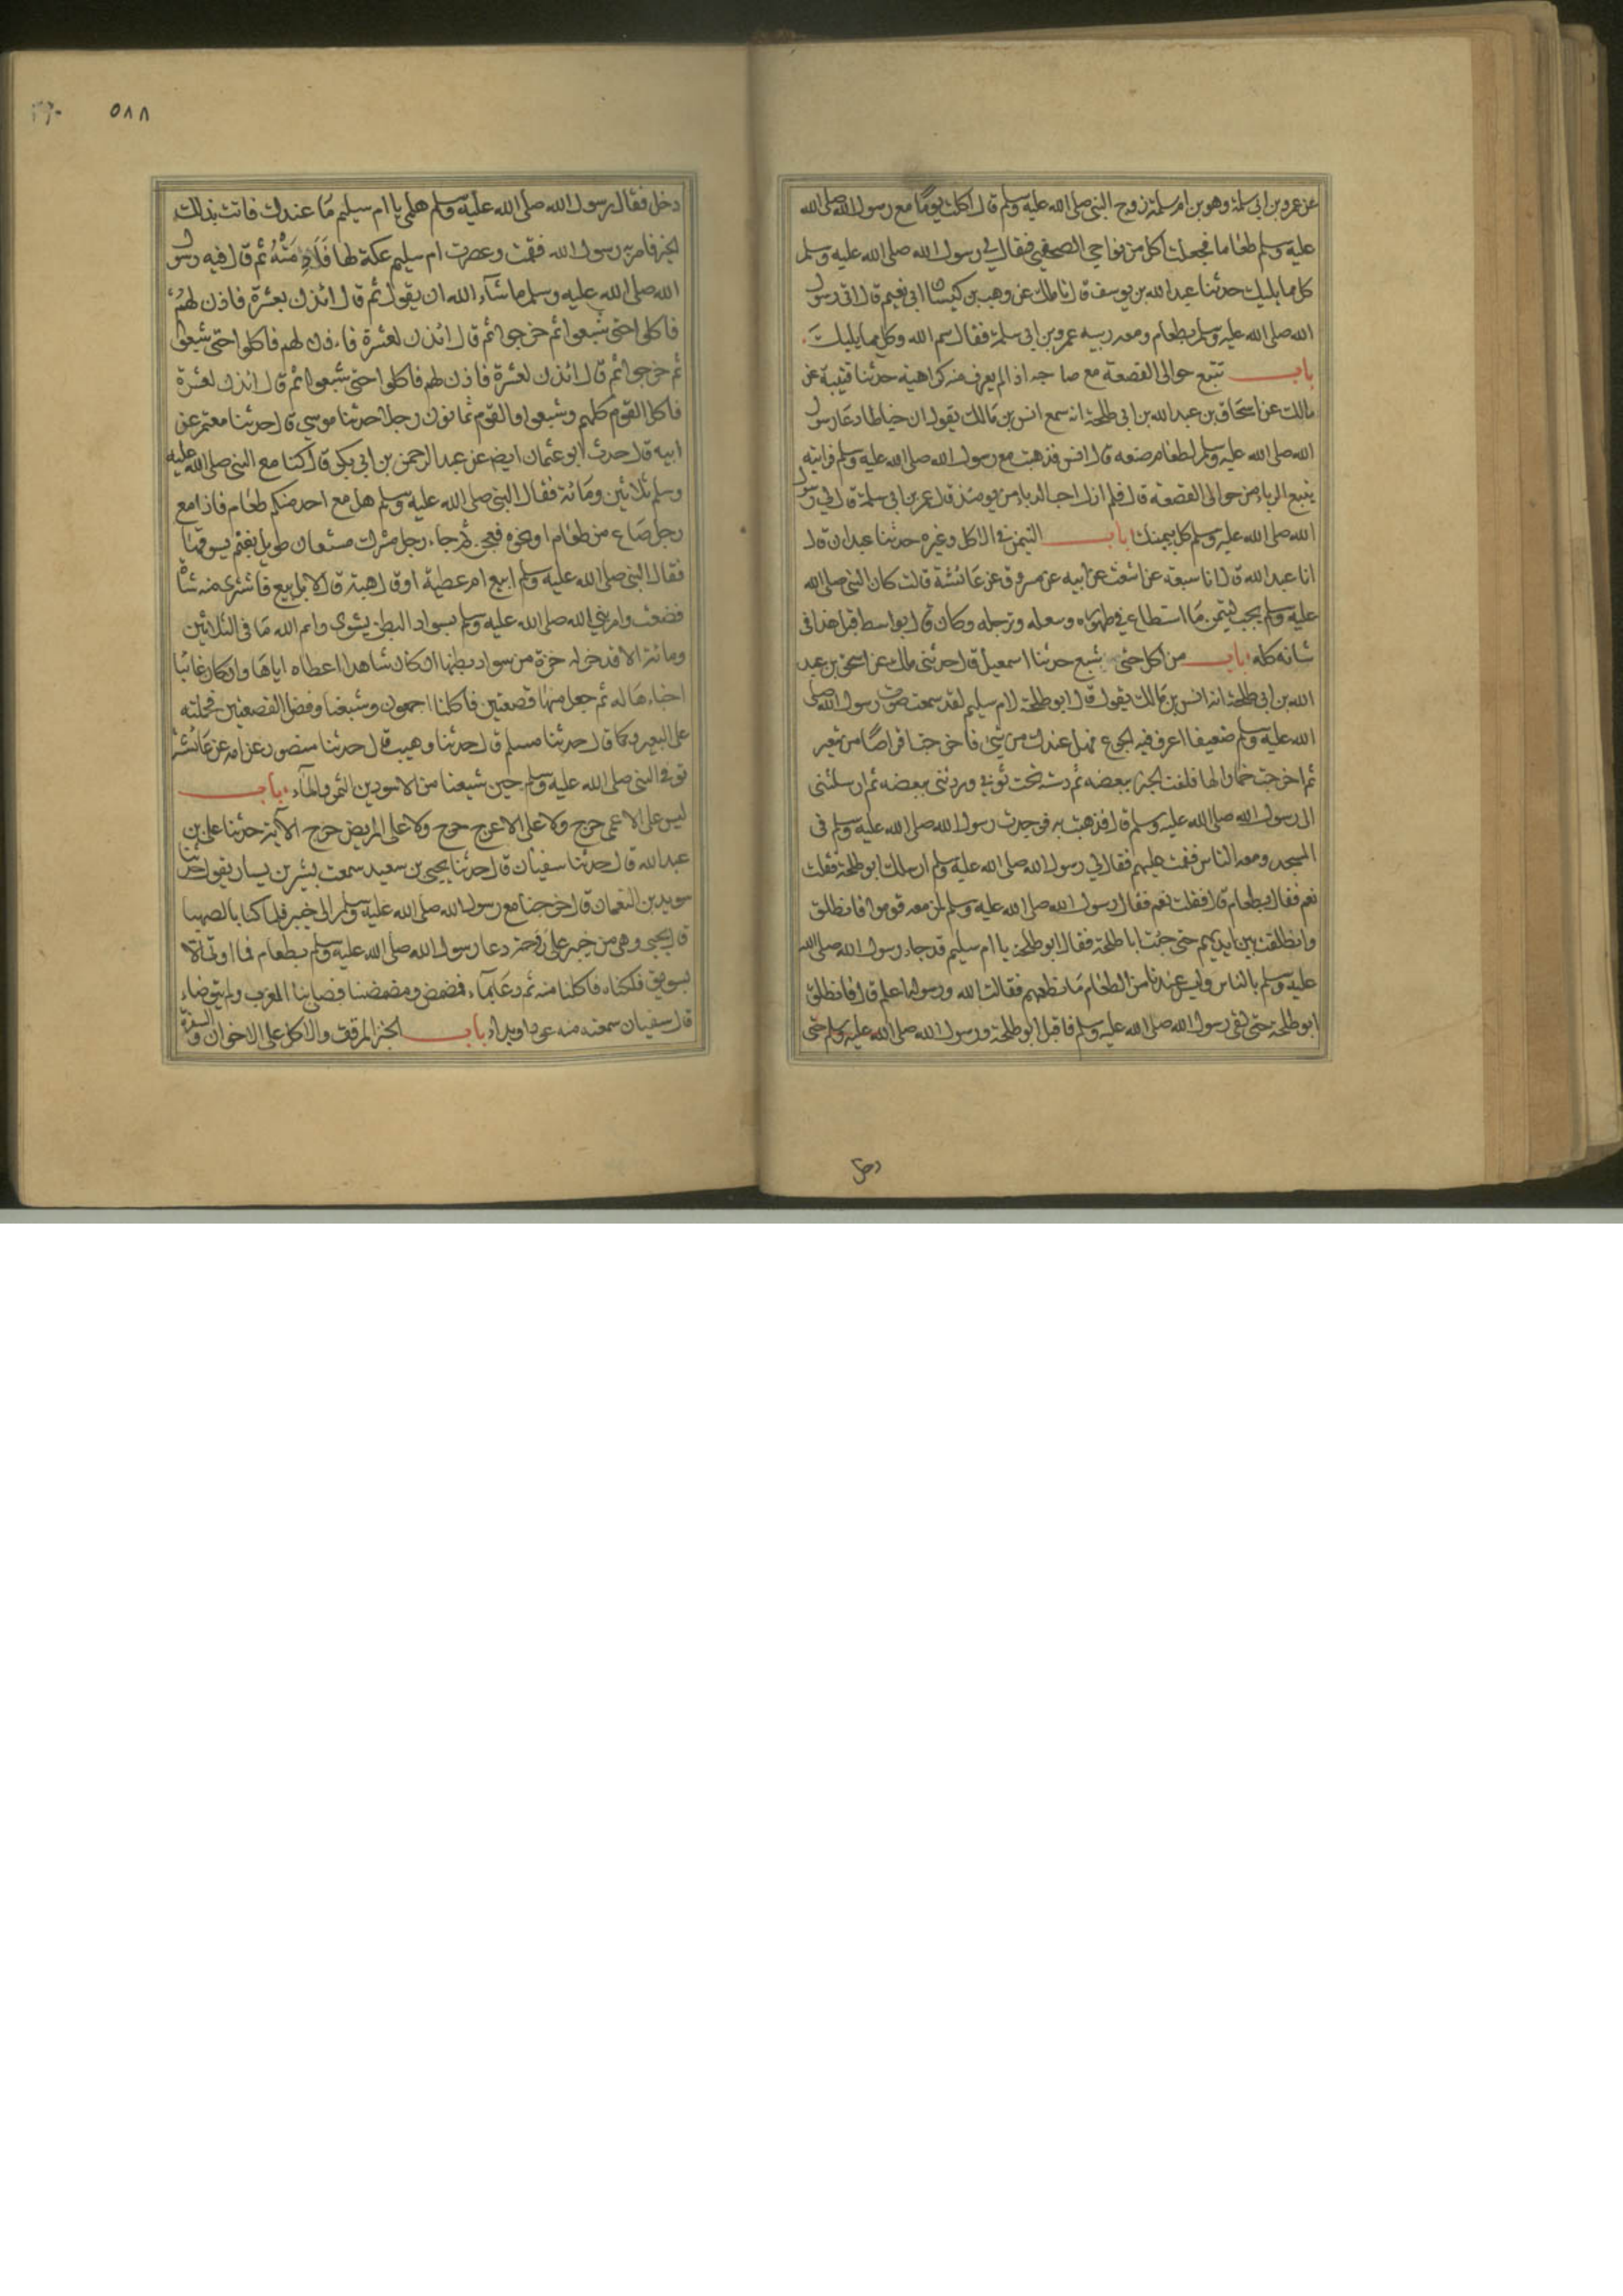 عن عمرو بن ابي سلمة وهو بن ام سلمة زوج النبي صلى الله عليه وسلم قال اكلت يوما مع رسول الله صلى الله
عليه وسلم طعاما فجعلت آكل من نواحي الصحفة فقال لي رسول الله صلى الله عليه وسلم
كل مما يليك حدثنا عبد الله بن يوسف قال انا ملك عن وهب بن كيسان ابي نعيم قال اتى رسول
الله صلى الله عليه وسلم بطعام ومعه ربيبه عمرو بن ابي سلمة فقال سم الله وكل مما يليك
باب تتبع حوالى القصعة مع صاحبه اذا لم يعرف منه كراهية حدثنا قتيبة عن
مالك عن اسحاق بن عبد الله بن ابي طلحة انه سمع انس بن مالك يقول ان خياطا دعا رسول
الله صلى الله عليه وسلم لطعام صنعه قال انس فذهبت مع رسول الله صلى الله عليه وسلم فرايته
يتبع الدباء من حوالى القصعة قال فلم ازل احب الدباء من يومئذ قال عمر بن ابي سلمة قال لي رسول
الله صلى الله عليه وسلم كل بيمينك باب التيمن في الاكل وغيره حدثنا عبدان قال
انا عبد الله قال انا شعبة عن اشعث عن ابيه عن مسروق عن عائشة قالت كان النبي صلى الله
عليه وسلم يحب التيمن ما استطاع في طهوره وتنعله وترجله وكان قال بواسط قبل هذا في
شانه كله باب من اكل حتى شبع حدثنا اسمعيل قال حدثني ملك عن اسحق بن عبد
الله بن ابي طلحة انه انس بن مالك يقول قال ابو طلحة لام سليم لقد سمعت صوت رسول الله صلى
الله عليه وسلم ضعيفا اعرف فيه الجوع فهل عندك من شئ فاخرجت اقراصا من شعير
ثم اخرجت خمارا لها فلفت الخبز ببعضه ثم دسته تحت ثوبي وردتني ببعضه ثم ارسلتني
الى رسول الله صلى الله عليه وسلم قال فذهبت به فوجدت رسول الله صلى الله عليه وسلم في
المسجد ومعه الناس فقمت عليهم فقال لي رسول الله صلى الله عليه وسلم ارسلك ابو طلحة فقلت
نعم فقال بطعام قال فقلت نعم فقال رسول الله صلى الله عليه وسلم لمن معه قوموا فانطلق
وانطلقت بين ايديهم حتى جئت ابا طلحة فقال ابو طلحة يا ام سليم قد جاء رسول الله صلى الله
عليه وسلم بالناس وليس عندنا من الطعام ما نطعمهم فقالت الله ورسوله اعلم قال فانطلق
ابو طلحة حتى لقي رسول الله صلى الله عليه وسلم فاقبل ابو طلحة ورسول الله صلى الله عليه وسلم حتى
دخل
٥٨٨
دخل فقال رسول الله صلى الله عليه وسلم هلمي يا ام سليم ما عندك فاتت بذلك
الخبز فامر به رسول الله ففت وعصرت ام سليم عكة لها فأدمته ثم قال فيه رسول
الله صلى الله عليه وسلم ما شاء الله ان يقول ثم قال ائذن بعشرة فاذن لهم
فاكلوا حتى شبعوا ثم خرجوا ثم قال ائذن لعشرة فاذن لهم فاكلوا حتى شبعوا
ثم خرجوا ثم قال ائذن لعشرة فاذن لهم فاكلوا حتى شبعوا ثم قال ائذن لعشرة
فاكل القوم كلهم وشبعوا والقوم ثمانون رجلا حدثنا موسى قال حدثنا معتمر عن
ابيه قال حدث ابو عثمان ايضا عن عبد الرحمن بن ابي بكر قال كنا مع النبي صلى الله عليه
وسلم ثلاثين ومائة فقال النبي صلى الله عليه وسلم هل مع احد منكم طعام فاذا مع
رجل صاع من طعام او نحوه فعجن ثم جاء رجل مشرك مشعان طويل بغنم يسوقها
فقال النبي صلى الله عليه وسلم ابيع ام عطية او قال هبة قال لا بل بيع فاشترى منه شاة
فصنعت وامر نبي الله صلى الله عليه وسلم بسواد البطن يشوى وايم الله ما في الثلاثين
ومائة الا قد حز له حزة من سواد بطنها ان كان شاهدا اعطاه اياها وان كان غائبا
اخباءها له ثم جعل منها قصعتين فاكلنا اجمعون وشبعنا وفضل القصعتين فحملته
على البعير وكما قال حدثنا مسلم قال حدثنا وهيب قال حدثنا منصور عن امه عن عائشة
توفي النبي صلى الله عليه وسلم حين شبعنا من الاسودين التمر والماء باب
ليس على الاعمى حرج ولا على الاعرج حرج ولا على المريض حرج الآية حدثنا علي بن
عبد الله قال حدثنا سفيان قال حدثنا يحيى بن سعيد سمعت بشير بن يسار يقول حدثنا
سويد بن النعمان قال خرجنا مع رسول الله صلى الله عليه وسلم الى خيبر فلما كنا بالصهبا
قال يحيى وهي من خيبر على روحة دعا رسول الله صلى الله عليه وسلم بطعام فما اوتي الا
بسويق فلكناه فاكلنا منه ثم دعا بماء فمضمض ومضمضنا فصلى بنا المغرب ولم يتوضاء
قال سفيان سمعته منه عودا وبداء باب الخبز المرقق والاكل على الاخوان والسفرة